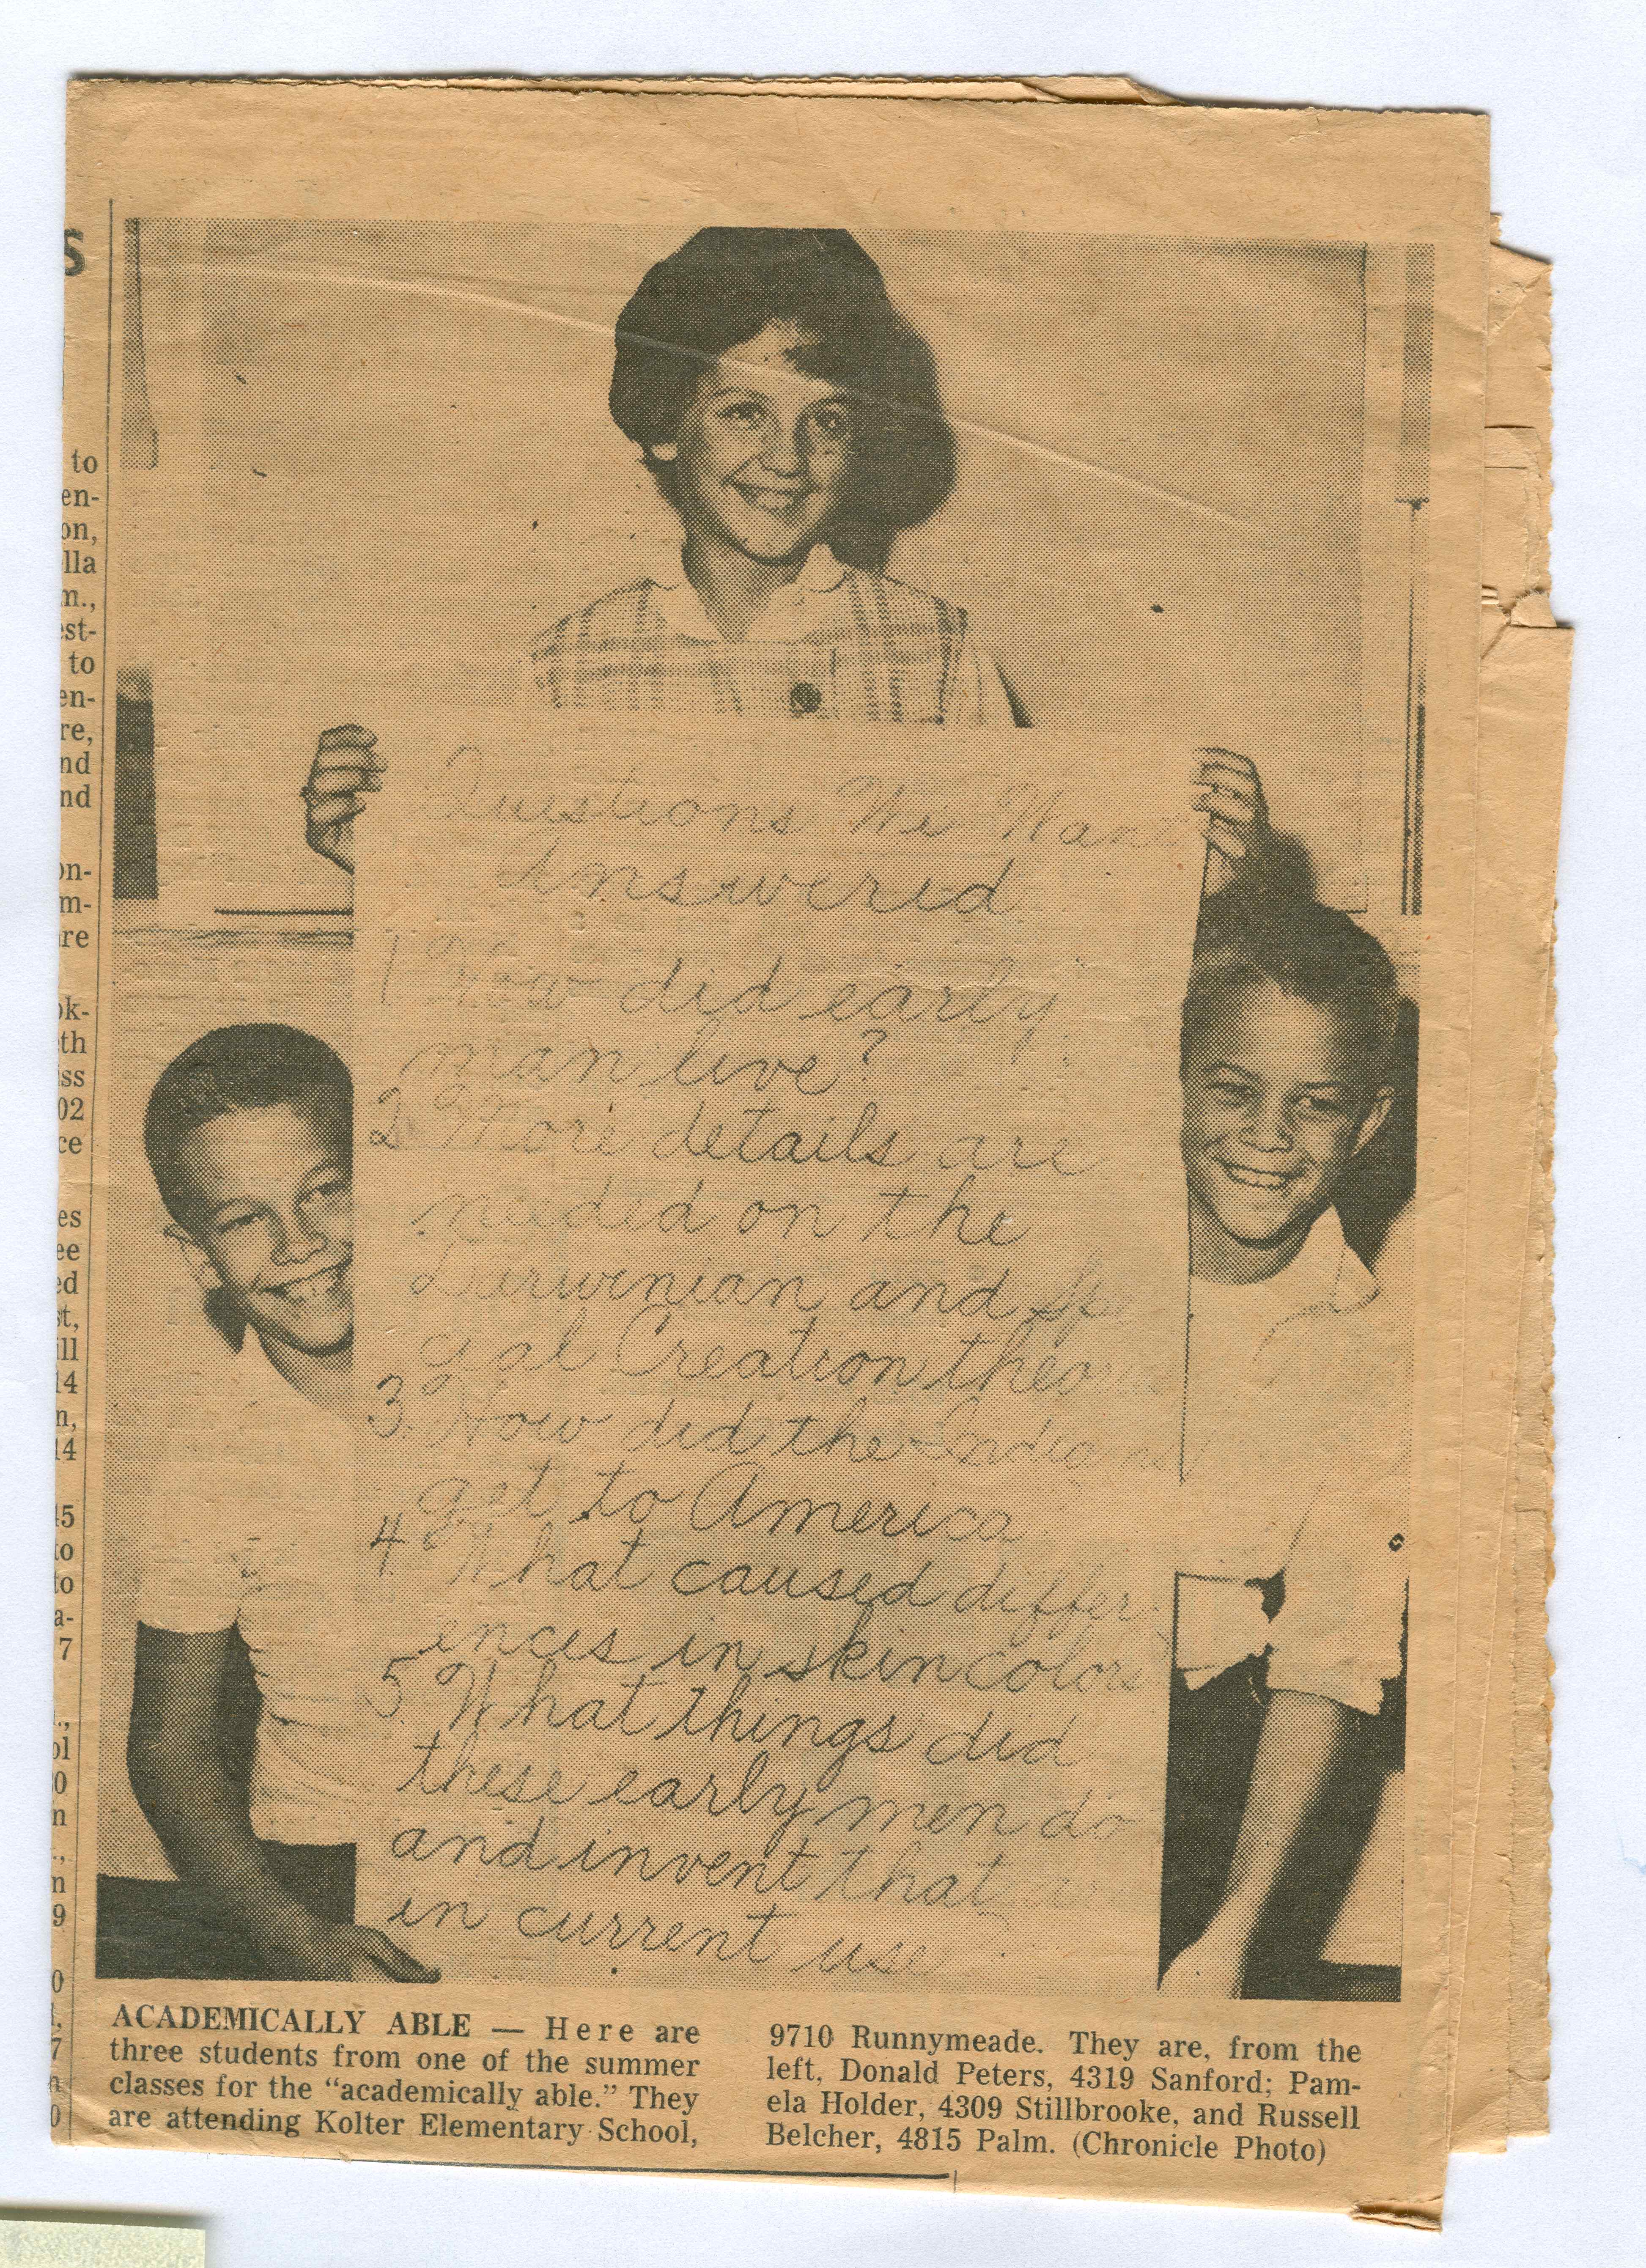 S
to
en-
on,
lla
m.,
est-
to
en-
re,
nd
nd
on-
m-
are
ok-
eth
iss
02
ce
es
ee
ed
st,
ill
14
n,
14
45
to
to
a-
7
ol
0
n
n
9
0
7
n
0
Questions We Want
Answered
1 How did early
man live?
2 More details are
needed on the
Darwinian and Spe
cial Creation theo
3. How did the Indians
get to America
4 What caused differ
ences in skin colors
5. What things did
these early men do
and invent that
in current use
ACADEMICALLY ABLE — Here are
three students from one of the summer
classes for the “academically able.” They
are attending Kolter Elementary School,
9710 Runnymeade. They are, from the
left, Donald Peters, 4319 Sanford; Pam-
ela Holder, 4309 Stillbrooke, and Russell
Belcher, 4815 Palm. (Chronicle Photo)